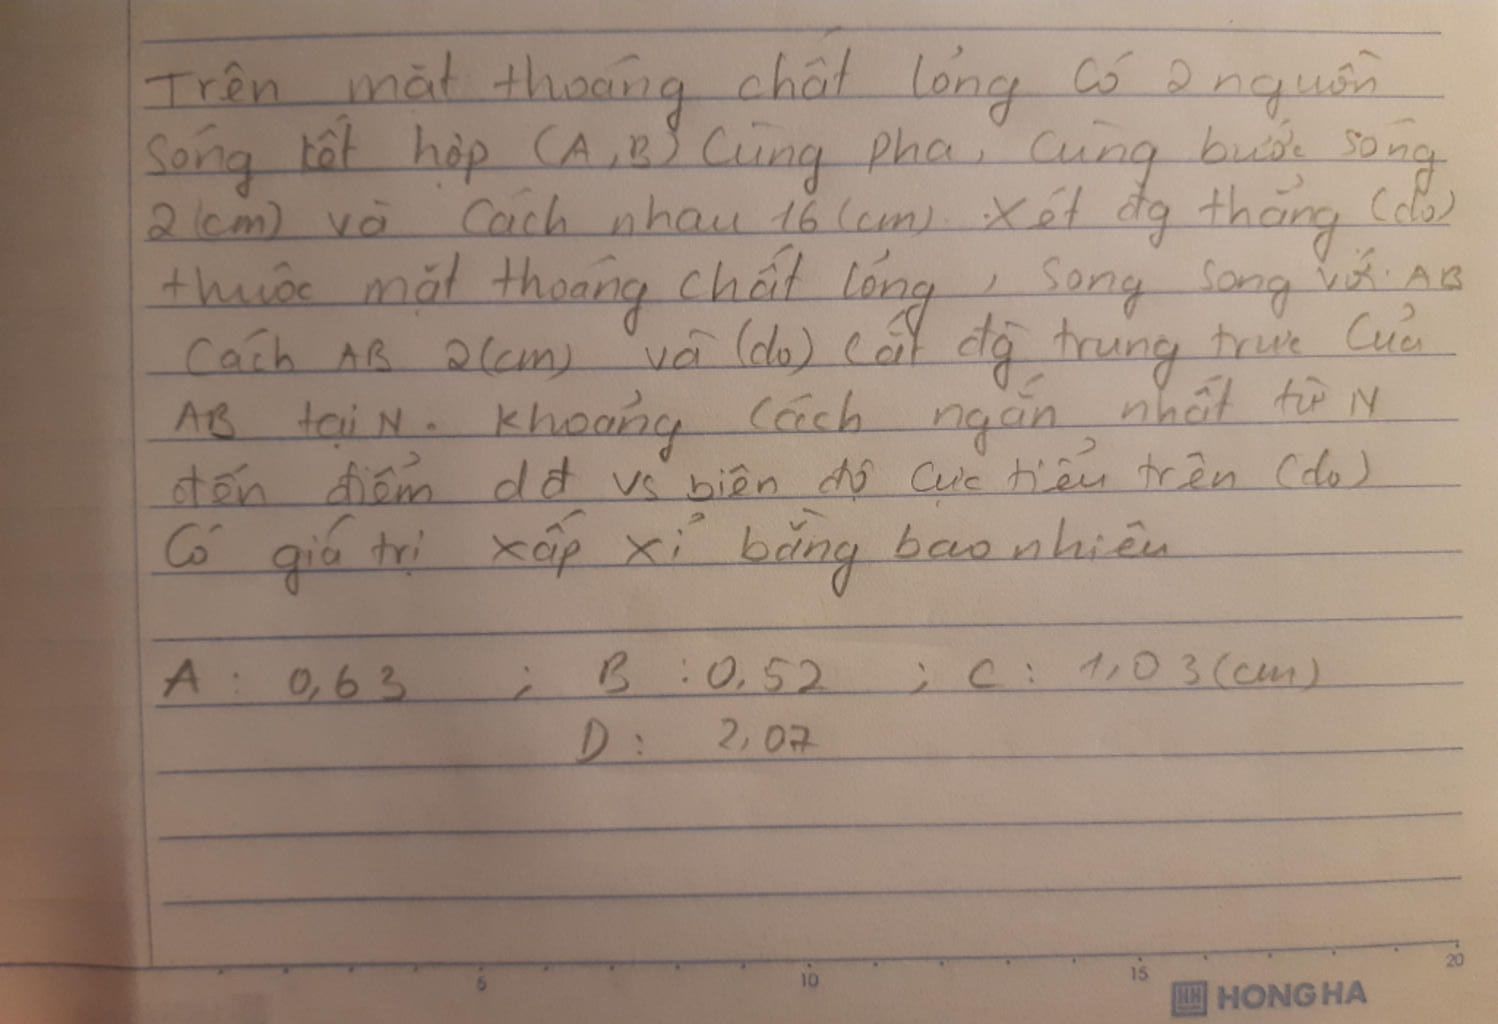 Trên mặt thoáng chất lỏng có 2 nguồn
sóng kết hợp (A,B) cùng pha, cùng bước sóng
2(cm) và cách nhau 16 (cm). Xét đg thẳng (do)
thuộc mặt thoáng chất lỏng, song song với AB
cách AB 2(cm) và (do) cắt đg trung trực của
AB tại N. Khoảng cách ngắn nhất từ N
đến điểm dđ vs biên độ cực tiểu trên (do)
Có giá trị xấp xỉ bằng bao nhiêu
A : 0,63 ; B : 0,52 ; C : 1,03 (cm)
D : 2,07
5 10 15 20
HH HONG HA